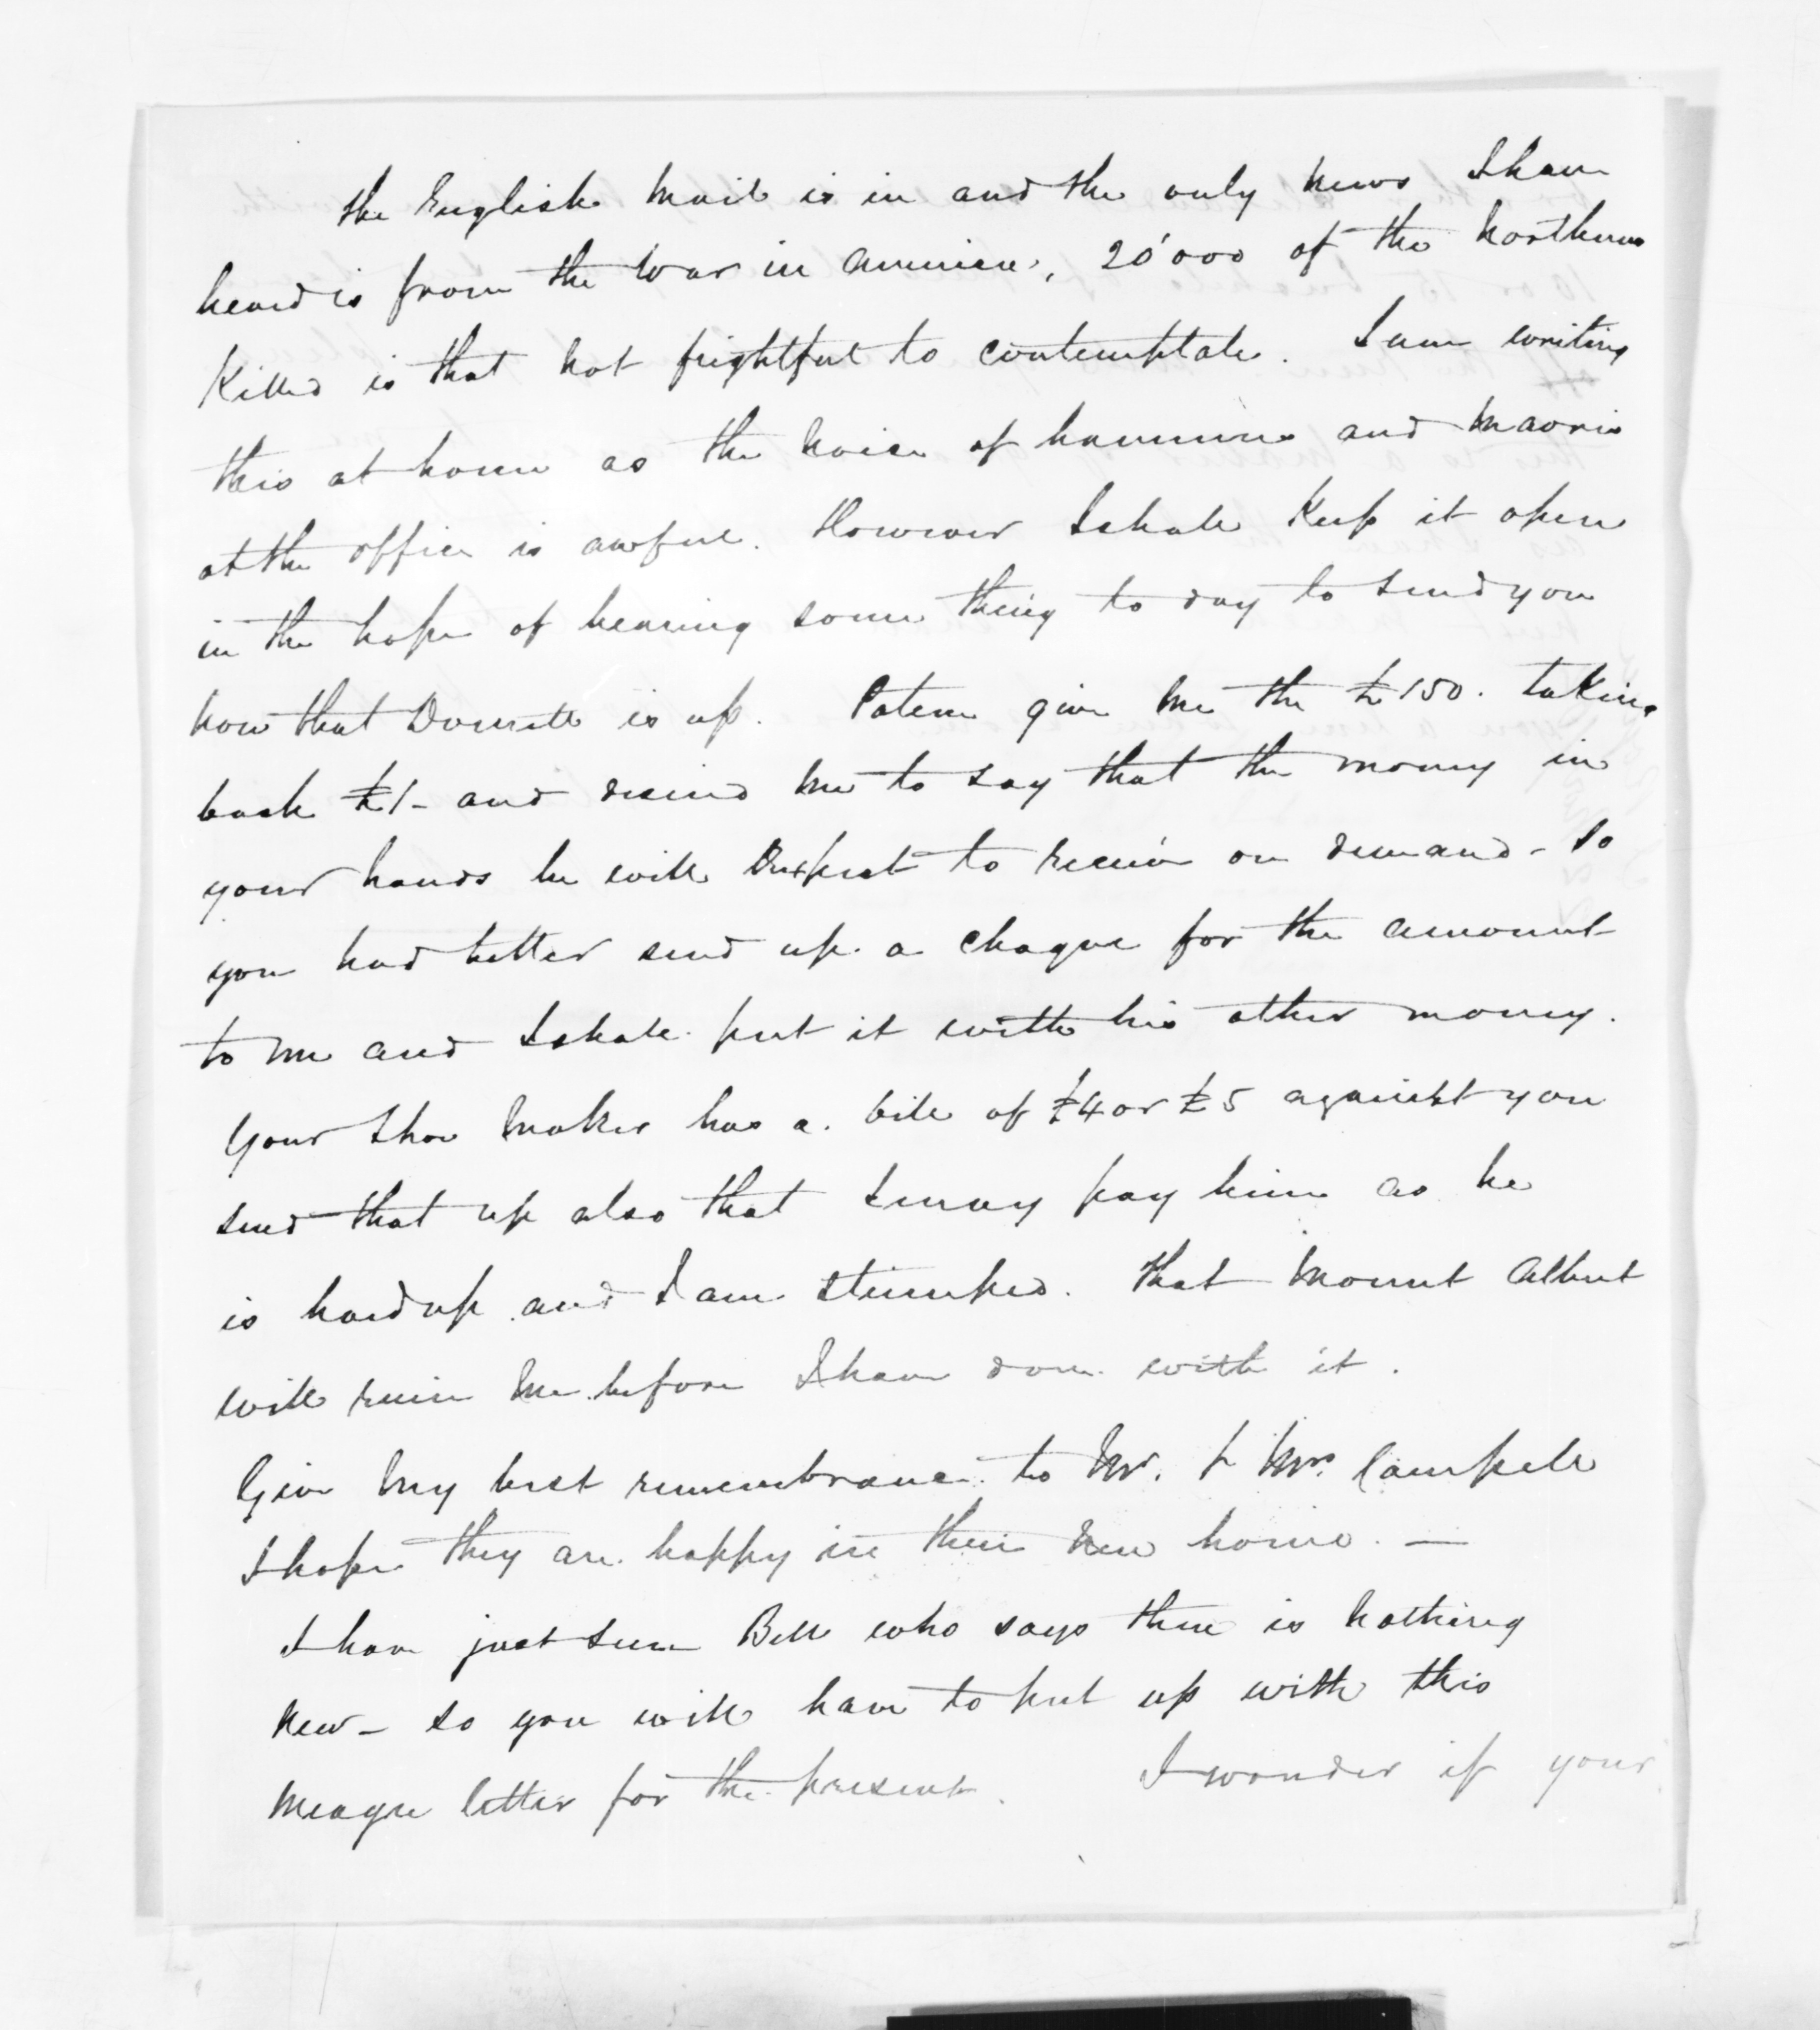 the English Mail is in and the only news I have
heard is from the War in America, 20'000 of the Northerns
Killed is that not frightful to contemplate. I am writing
this at home as the noise of hammers and Maoris
at the office is awful. However I shall Keep it open
in the hope of hearing some thing to day to send you
now that is up. give me the £150. taking
back £1- and desired me to say that the money in
your hands he will expect to receive on demand - so
you had better send up a cheque for the amount
to me and I shall put it with his other money.
Your Shoe Maker has a bill of £4 or £5 against you
send that up also that I may pay him as he
is hard up and I am stumped. That Mount Albert
will ruin me before I have done with it.
Give my best remembrance to Mr. & Mrs. Campell
I hope they are happy in their new home. —
I have just seen Bell who says there is nothing
new - so you will have to put up with this
meagre letter for the present. I wonder if your